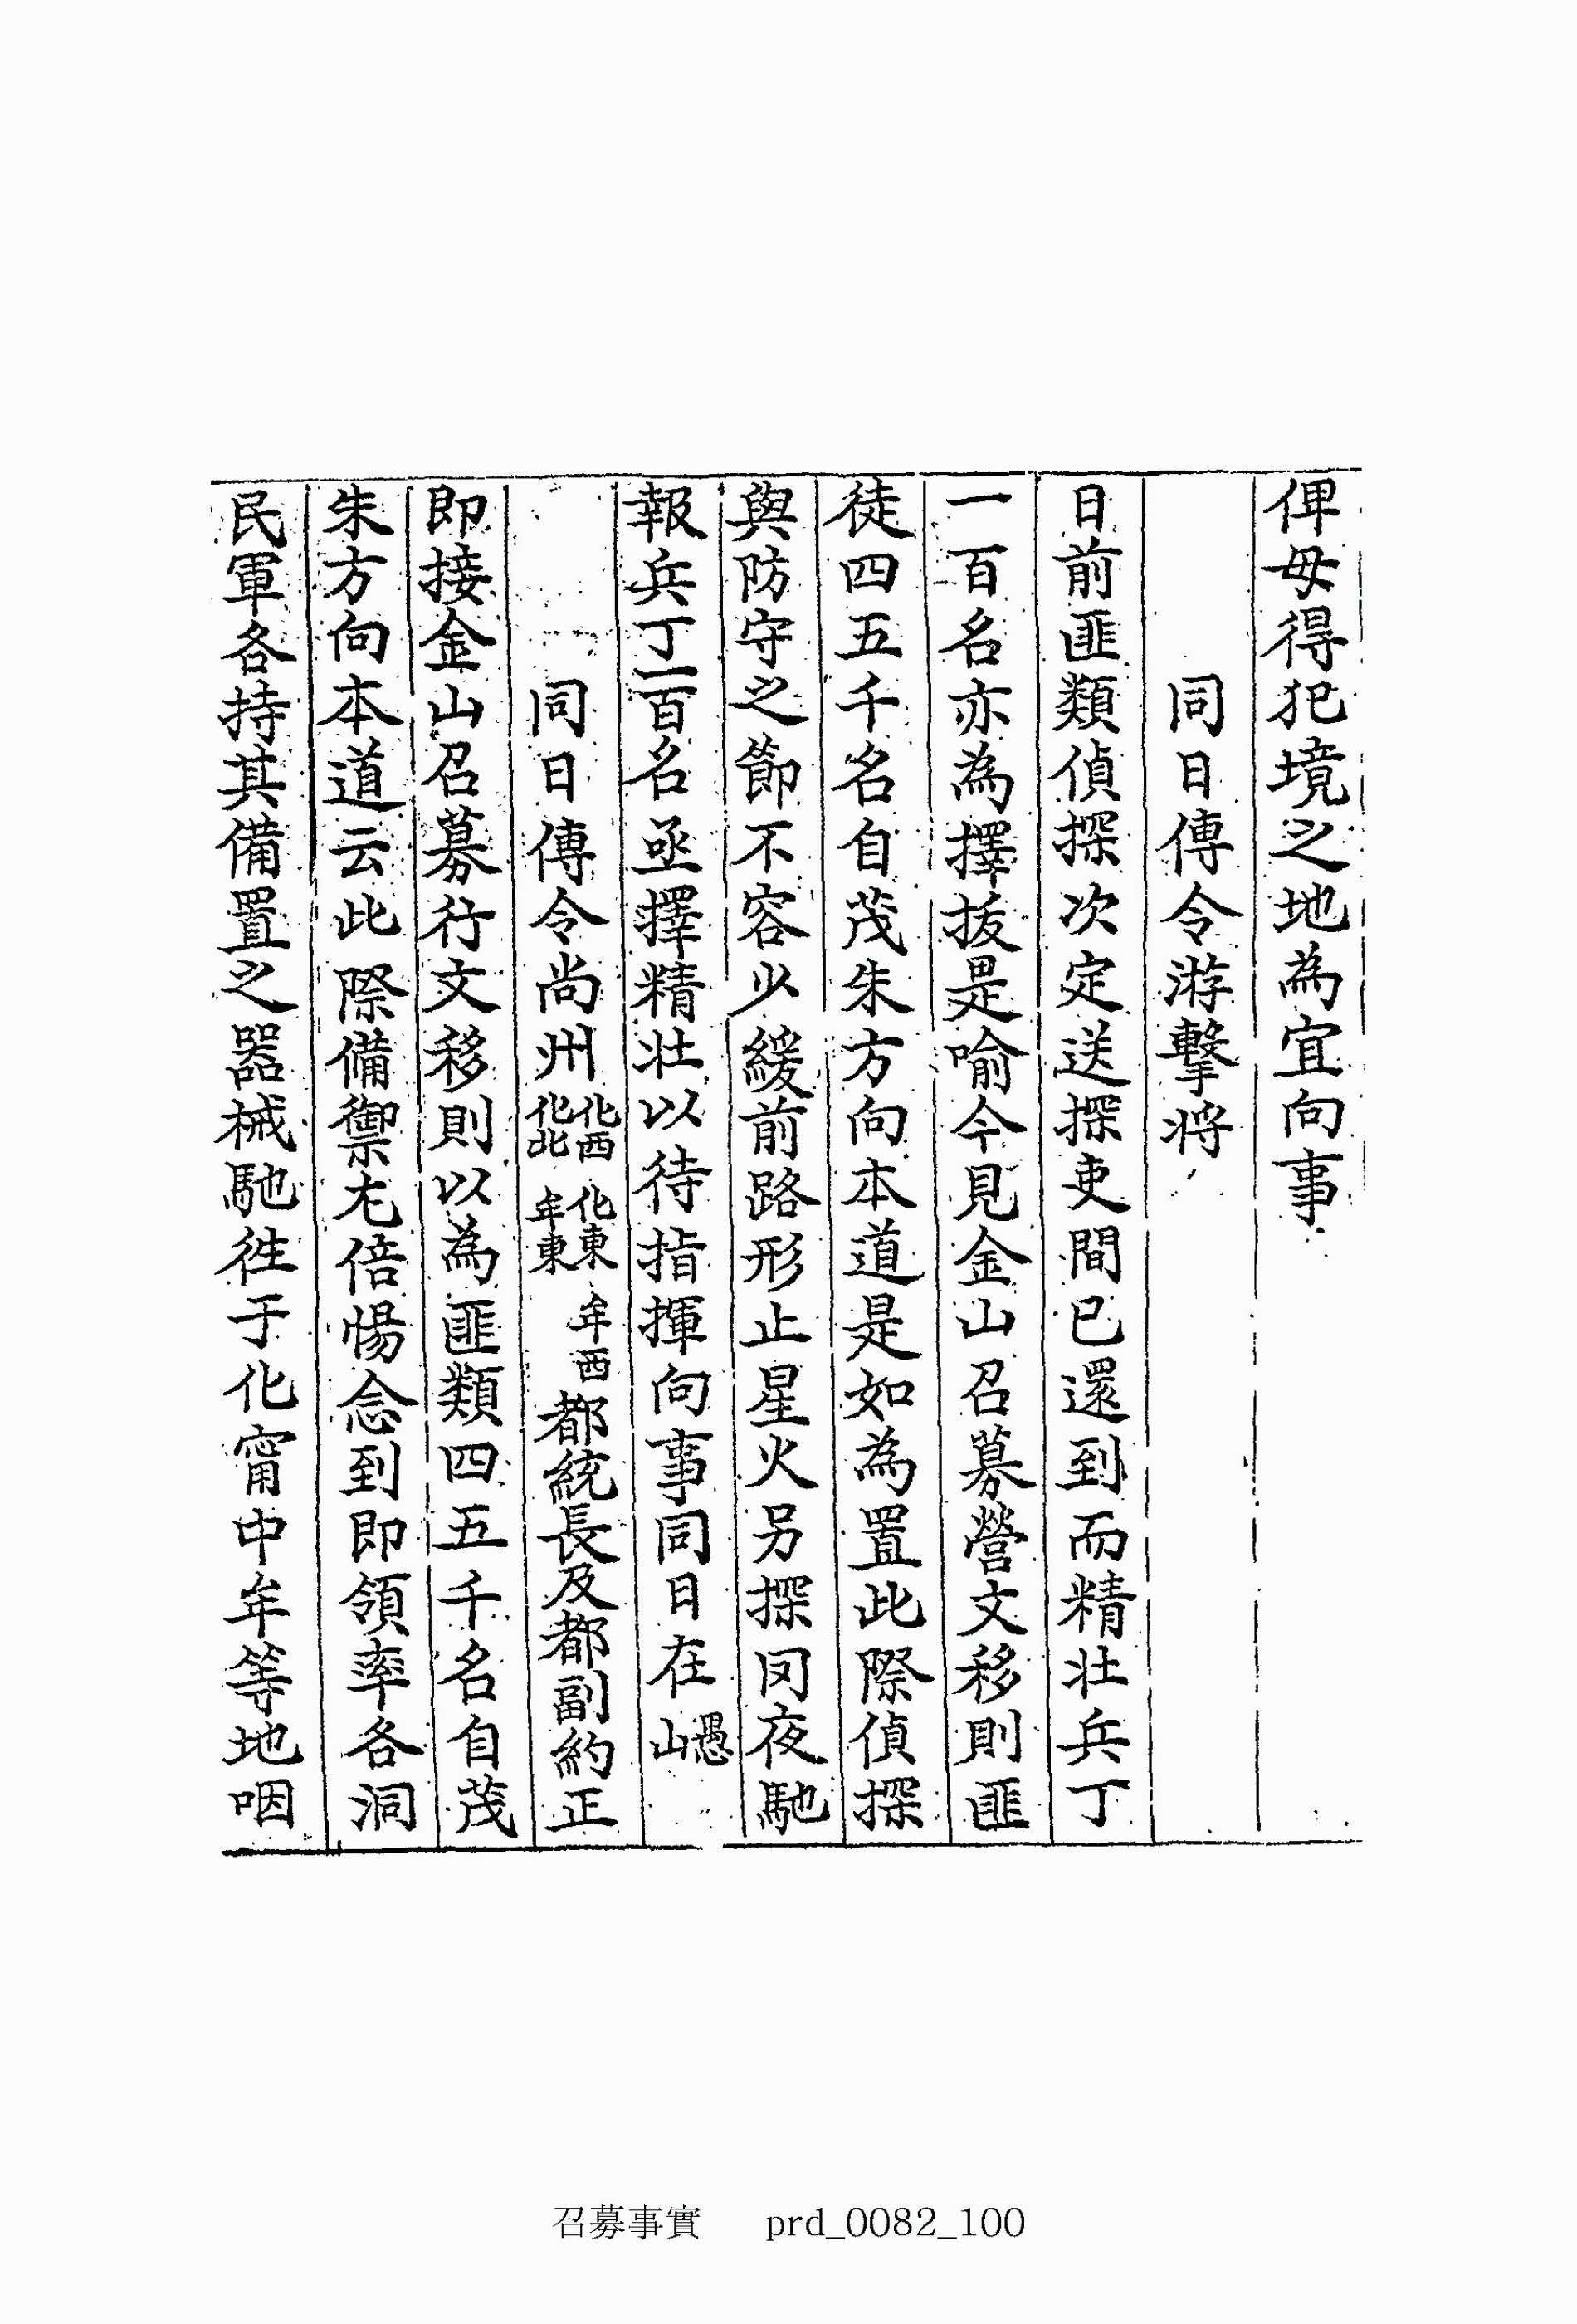 俾毋得犯境之地為宜向事
同日傳令游擊將
日前匪類偵探次定送探吏間已還到而精壯兵丁
一百名亦為擇拔是喻今見金山召募營文移則匪
徒四五千名自茂朱方向本道是如為置此際偵探
與防守之節不容少緩前路形止星火另探罔夜馳
報兵丁一百名亟擇精壯以待指揮向事同日在愚山
同日傳令尚州化西化北化東牟東牟西都統長及都副約正
即接金山召募行文移則以為匪類四五千名自茂
朱方向本道云此際備禦尤倍惕念到即領率各洞
民軍各持其備置之器械馳徃于化甯中牟等地咽
召募事實 prd_0082_100